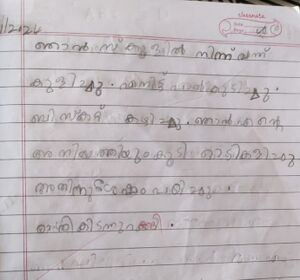 classmate
Date
Page
/2024
ഞാൻ സ്കൂളിൽ നിന്ന് വന്ന്
കുളിച്ചു. എന്നിട്ട് ചായ കുടിച്ചു.
ബിസ്കറ്റ് കഴിച്ചു. ഞാൻ എന്റെ
അനിയത്തിയും കൂടി ഓടികളിച്ചു
അതിനുശേഷം പഠിച്ചു.
കിടന്നുറങ്ങി.